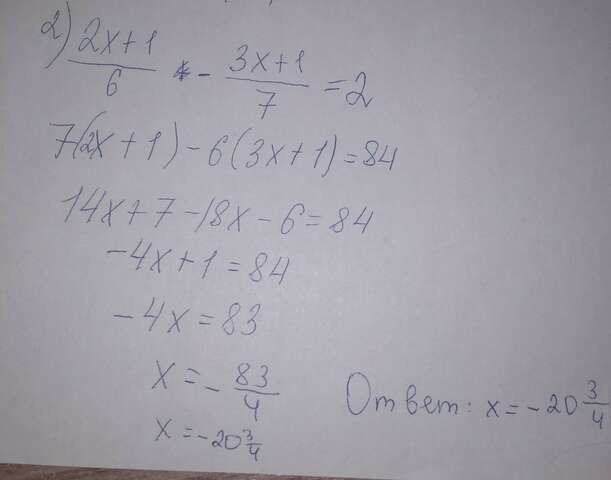 2) (2x+1)/6 - (3x+1)/7 = 2
7(2x+1)-6(3x+1)=84
14x+7-18x-6=84
-4x+1=84
-4x=83
x=-83/4
x=-20 3/4
Ответ: x=-20 3/4